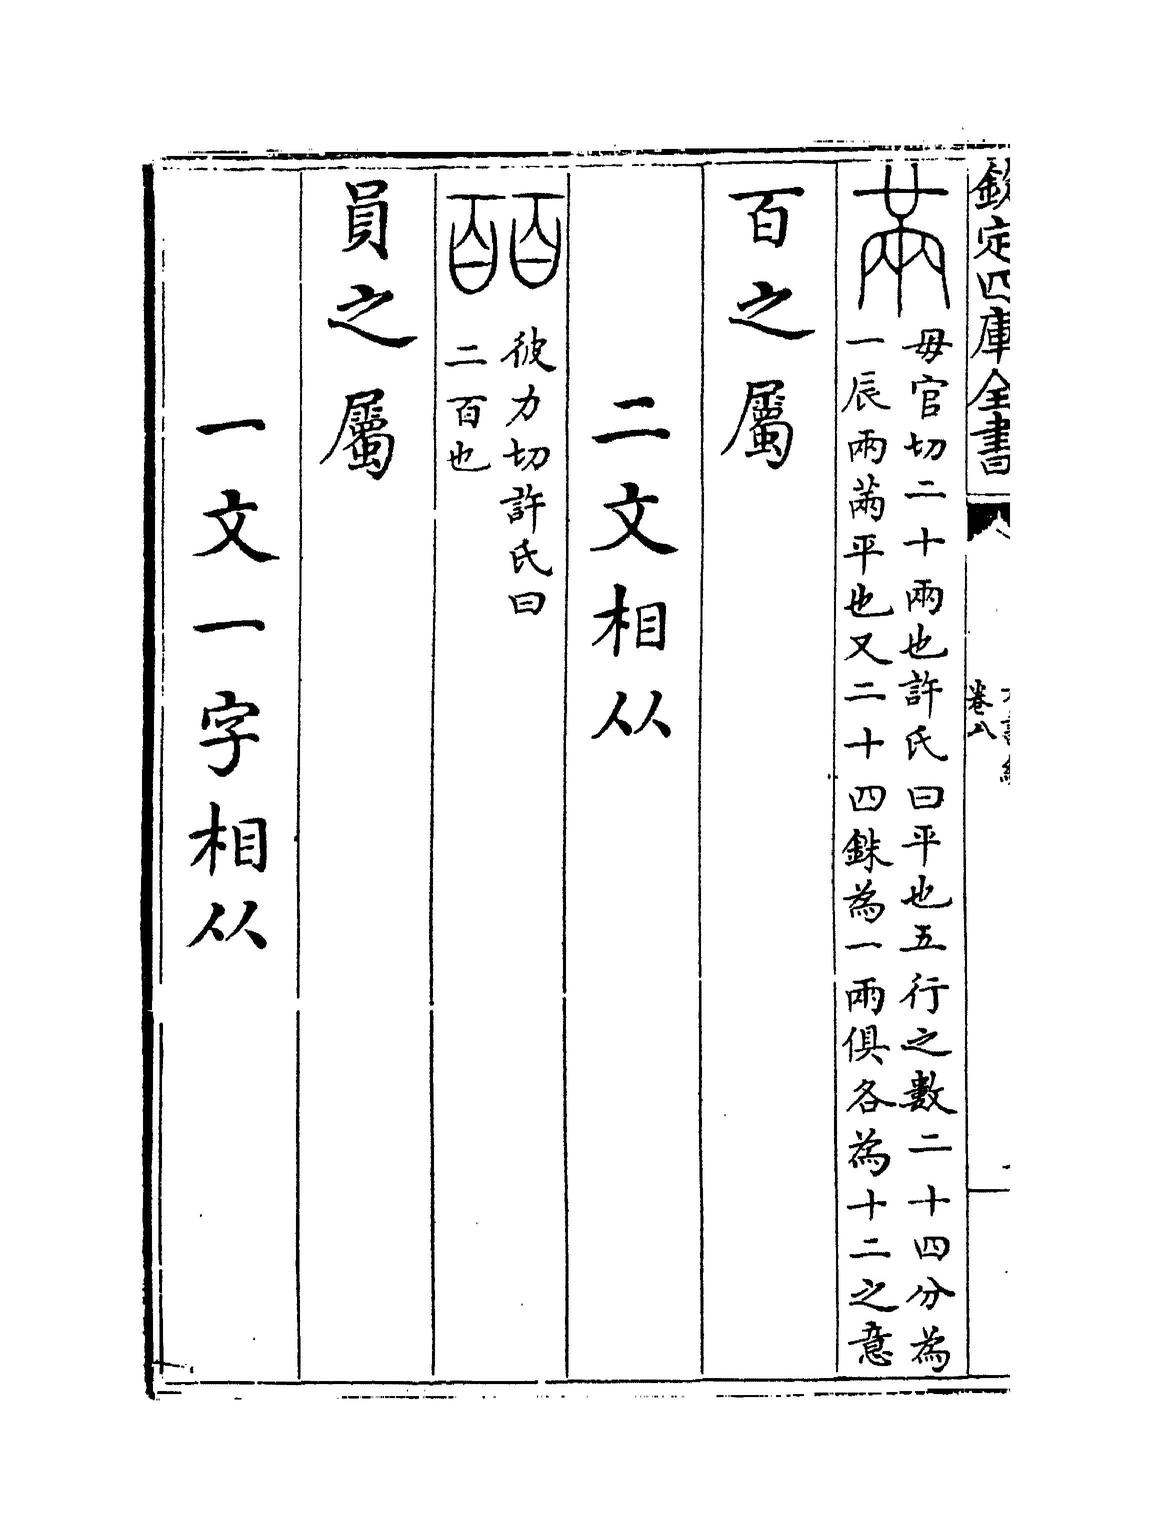 欽定四庫全書
卷八
㒼
毋官切二十兩也許氏曰平也五行之數二十四分為
一辰兩㒼平也又二十四銖為一兩俱各為十二之意
百之屬
二文相从
皕
彼力切許氏曰
二百也
員之屬
一文一字相从